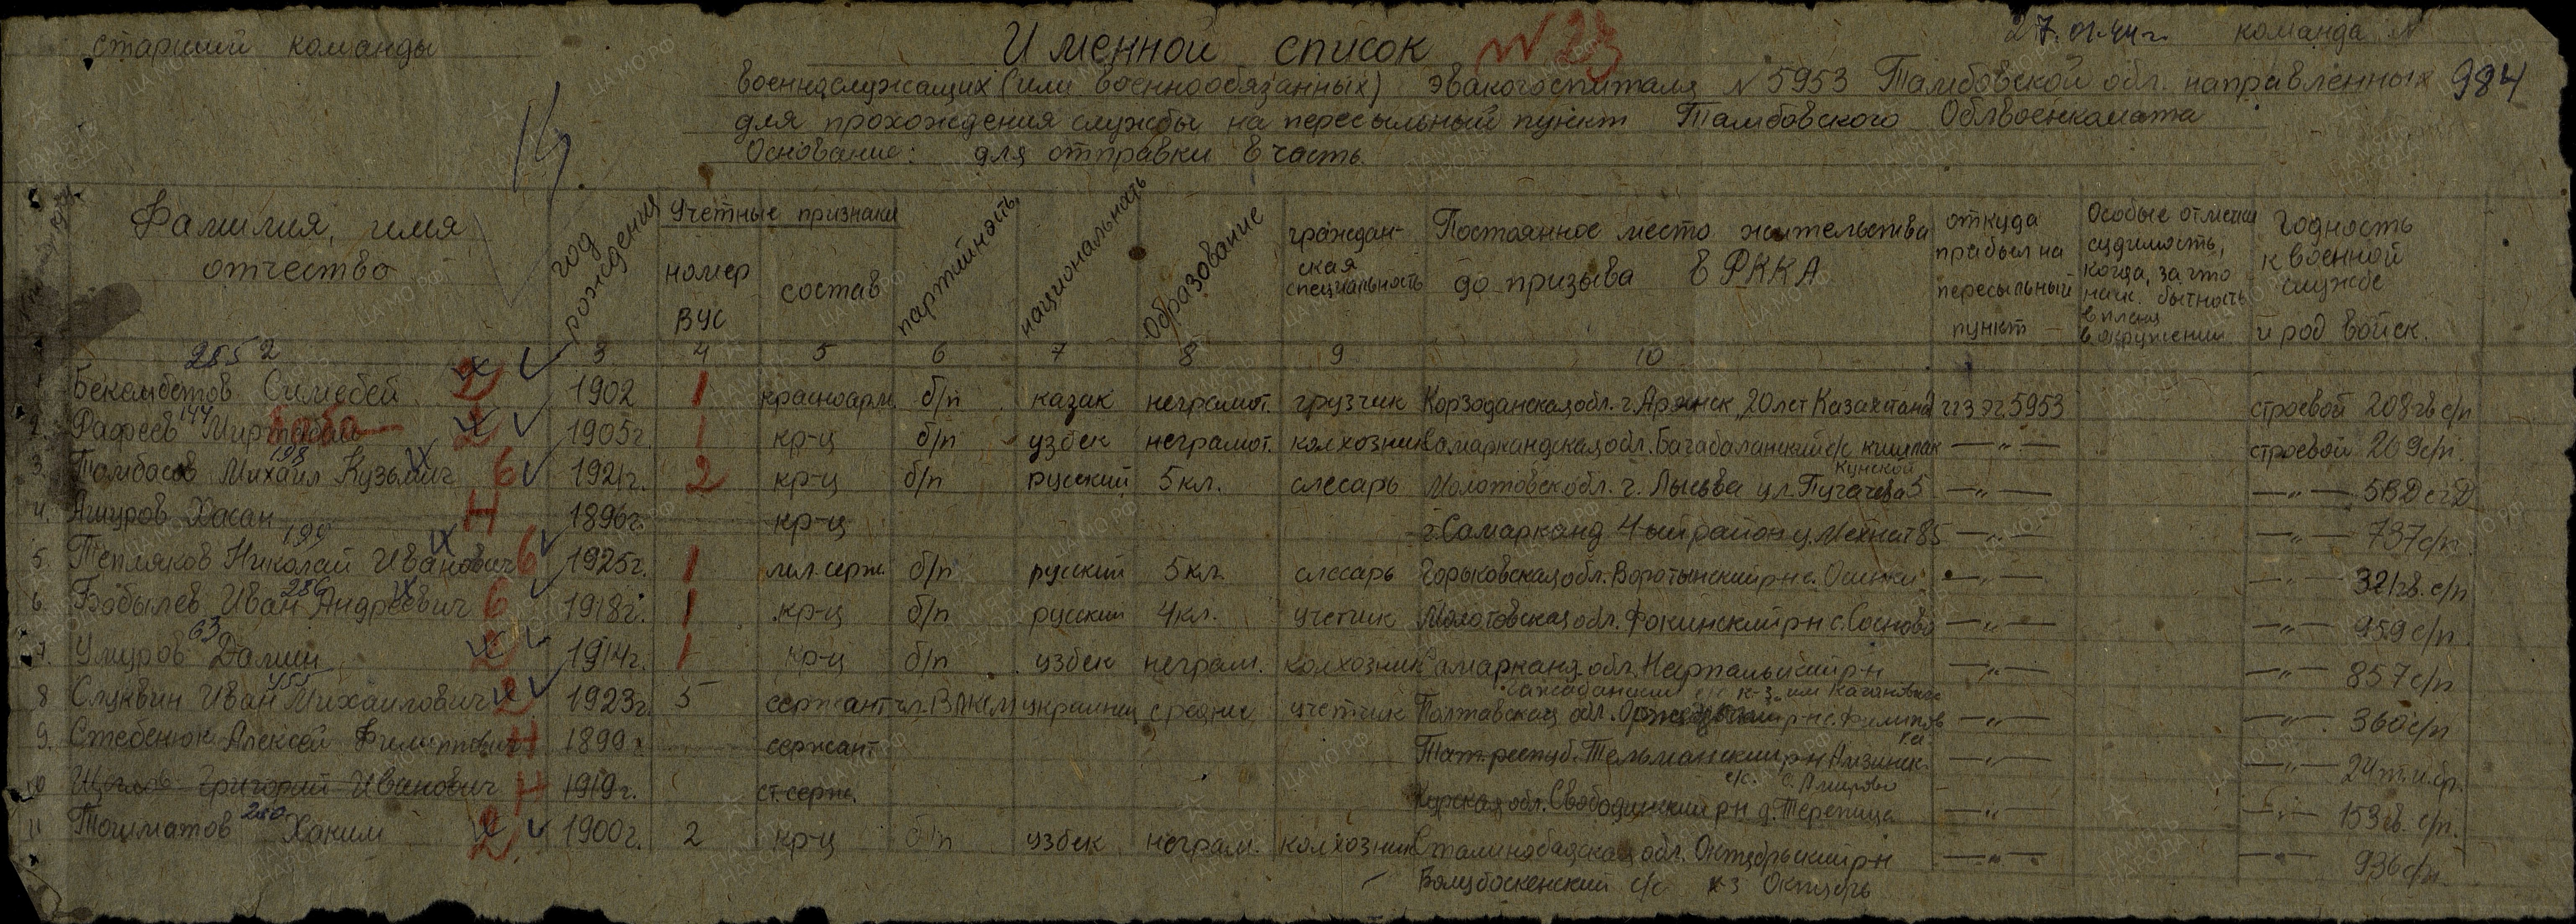 старший команды
Именной список N 23
27.01.44г. команда N 984
военнослужащих (или военнообязанных) эвакогоспиталя N 5953 Тамбовской обл. направленных
для прохождения службы на пересыльный пункт Тамбовского Облвоенкомата
Основание: для отправки в часть.
14.
Фамилия, имя отчество
год рождения
Учетные признаки
номер ВУС
состав
партийность
национальность
Образование
граждан-
ская
специальность
Постоянное место жительства
до призыва в РККА
откуда
прибыл на
пересыльный
пункт
Особые отметки
судимость,
когда, за что
нак. бытность
в плену
в окружении
Годность
к военной
службе
и род войск.
3 4 5 6 7 8 9 10
2852
1 Бекембетов 2 1902 1 красноарм. б/п казак неграмот. грузчик обл. г. 20 лет Казахстана ЭГ 5953 строевой 208 гв с/п
144
2. 1905г. 1 кр-ц б/п узбек неграмот. колхозник Самаркандская обл. с/с кишлак —"— строевой 269 с/п.
198
3. Томбасов Михаил Кузьмич 6 1921г. 2 кр-ц б/п русский 5 кл. слесарь Молотовск обл. г. Лысьва ул. Пугачева 5 —"— —"—
4. Ашуров Хасан Н 1896г. кр-ц г. Самарканд 4 ый район у. Мехнат 85 —"— —"— 737 с/п
199
5. Тепляков Николай Иванович 6 1925г. 1 мл. серж. б/п русский 5 кл. слесарь Горьковская обл. Воротынский р-н с. Осинки —"— —"— 32 гв. с/п
286
6. Бобылев Иван Андреевич 6 1918г. 1 кр-ц б/п русский 4 кл. учетчик Молотовская обл. Фокинский р-н с. Сосново —"— —"— 959 с/п
63
7. Умуров Далин 2 1914г. 1 кр-ц б/п узбек неграм. колхозник Самарканд. обл. Нарпайский р-н —"— —"— 857 с/п
с/с к-з им Кагановича
455
8 Слуквин Иван Михайлович 2 1923г. 5 сержант чл. ВЛКСМ украинец средние учетчик Полтавская обл. р-н с. —"— —"— 360 с/п
9. Стебенюк Алексей Филиппович Н 1899г. сержант Тат. респуб. Тельманский р-н —"— —"—
с/с. с. Амирово
10 Щеглов Григорий Иванович Н 1919г. ст. серж. Курская обл. Свободинский р-н д. —"— —"— 153 гв. с/п.
280
11 Тошматов Хаким 2 1900г. 2 кр-ц б/п узбек неграм. колхозник Сталинабадская обл. Октябрьский р-н —"— —"— 936 с/п
с/с к-з Октябрь